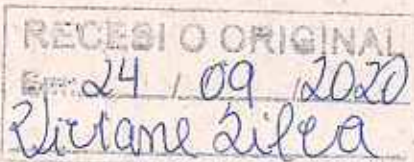 RECEBI O ORIGINAL
Em: 24 / 09 / 2020
Viviane Silva